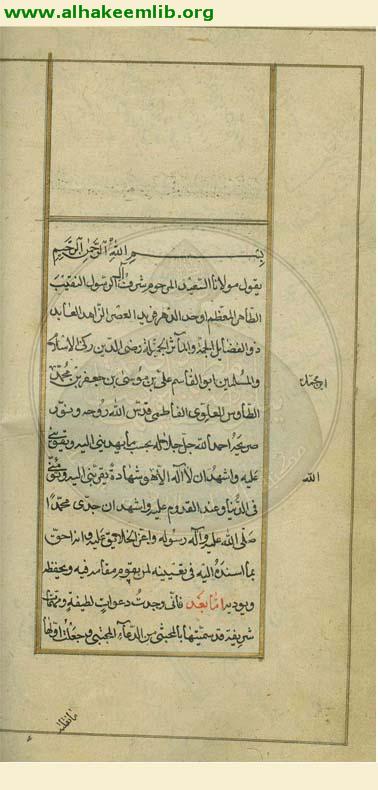 www.alhakeemlib.org
بسم الله الرحمن الرحيم
يقول مولانا السعيد المرحوم شرف آل الرسول النقيب
الطاهر المعظم اوحد الدهر فريد العصر الزاهد العابد
ذو الفضايل والمآثر رضى الدين ركن الاسلام
والمسلمين ابو القاسم على بن موسى بن جعفر بن محمد
الطاوس العلوى الفاطمى قدس الله روحه ونور
ضريحه احمد الله جل جلاله بحسب ما يهدينى اليه ويقوينى
عليه واشهد ان لا اله الا هو شهادة يقربنى اليه
الله
فى الدنيا وعند القدوم عليه واشهد ان جدى محمدا
صلى الله عليه وآله رسوله واعز الخلايق عليه وانه احق
بما اسنده اليه فى تعيينه لمن يقوم مقامه فيه ويحفظه
ويوديه اما بعد فانى وجدت دعوات لطيفة ومهمات
شريفة قد سميتها بالمجتنى من الدعاء المجتبى وجعلت اولها